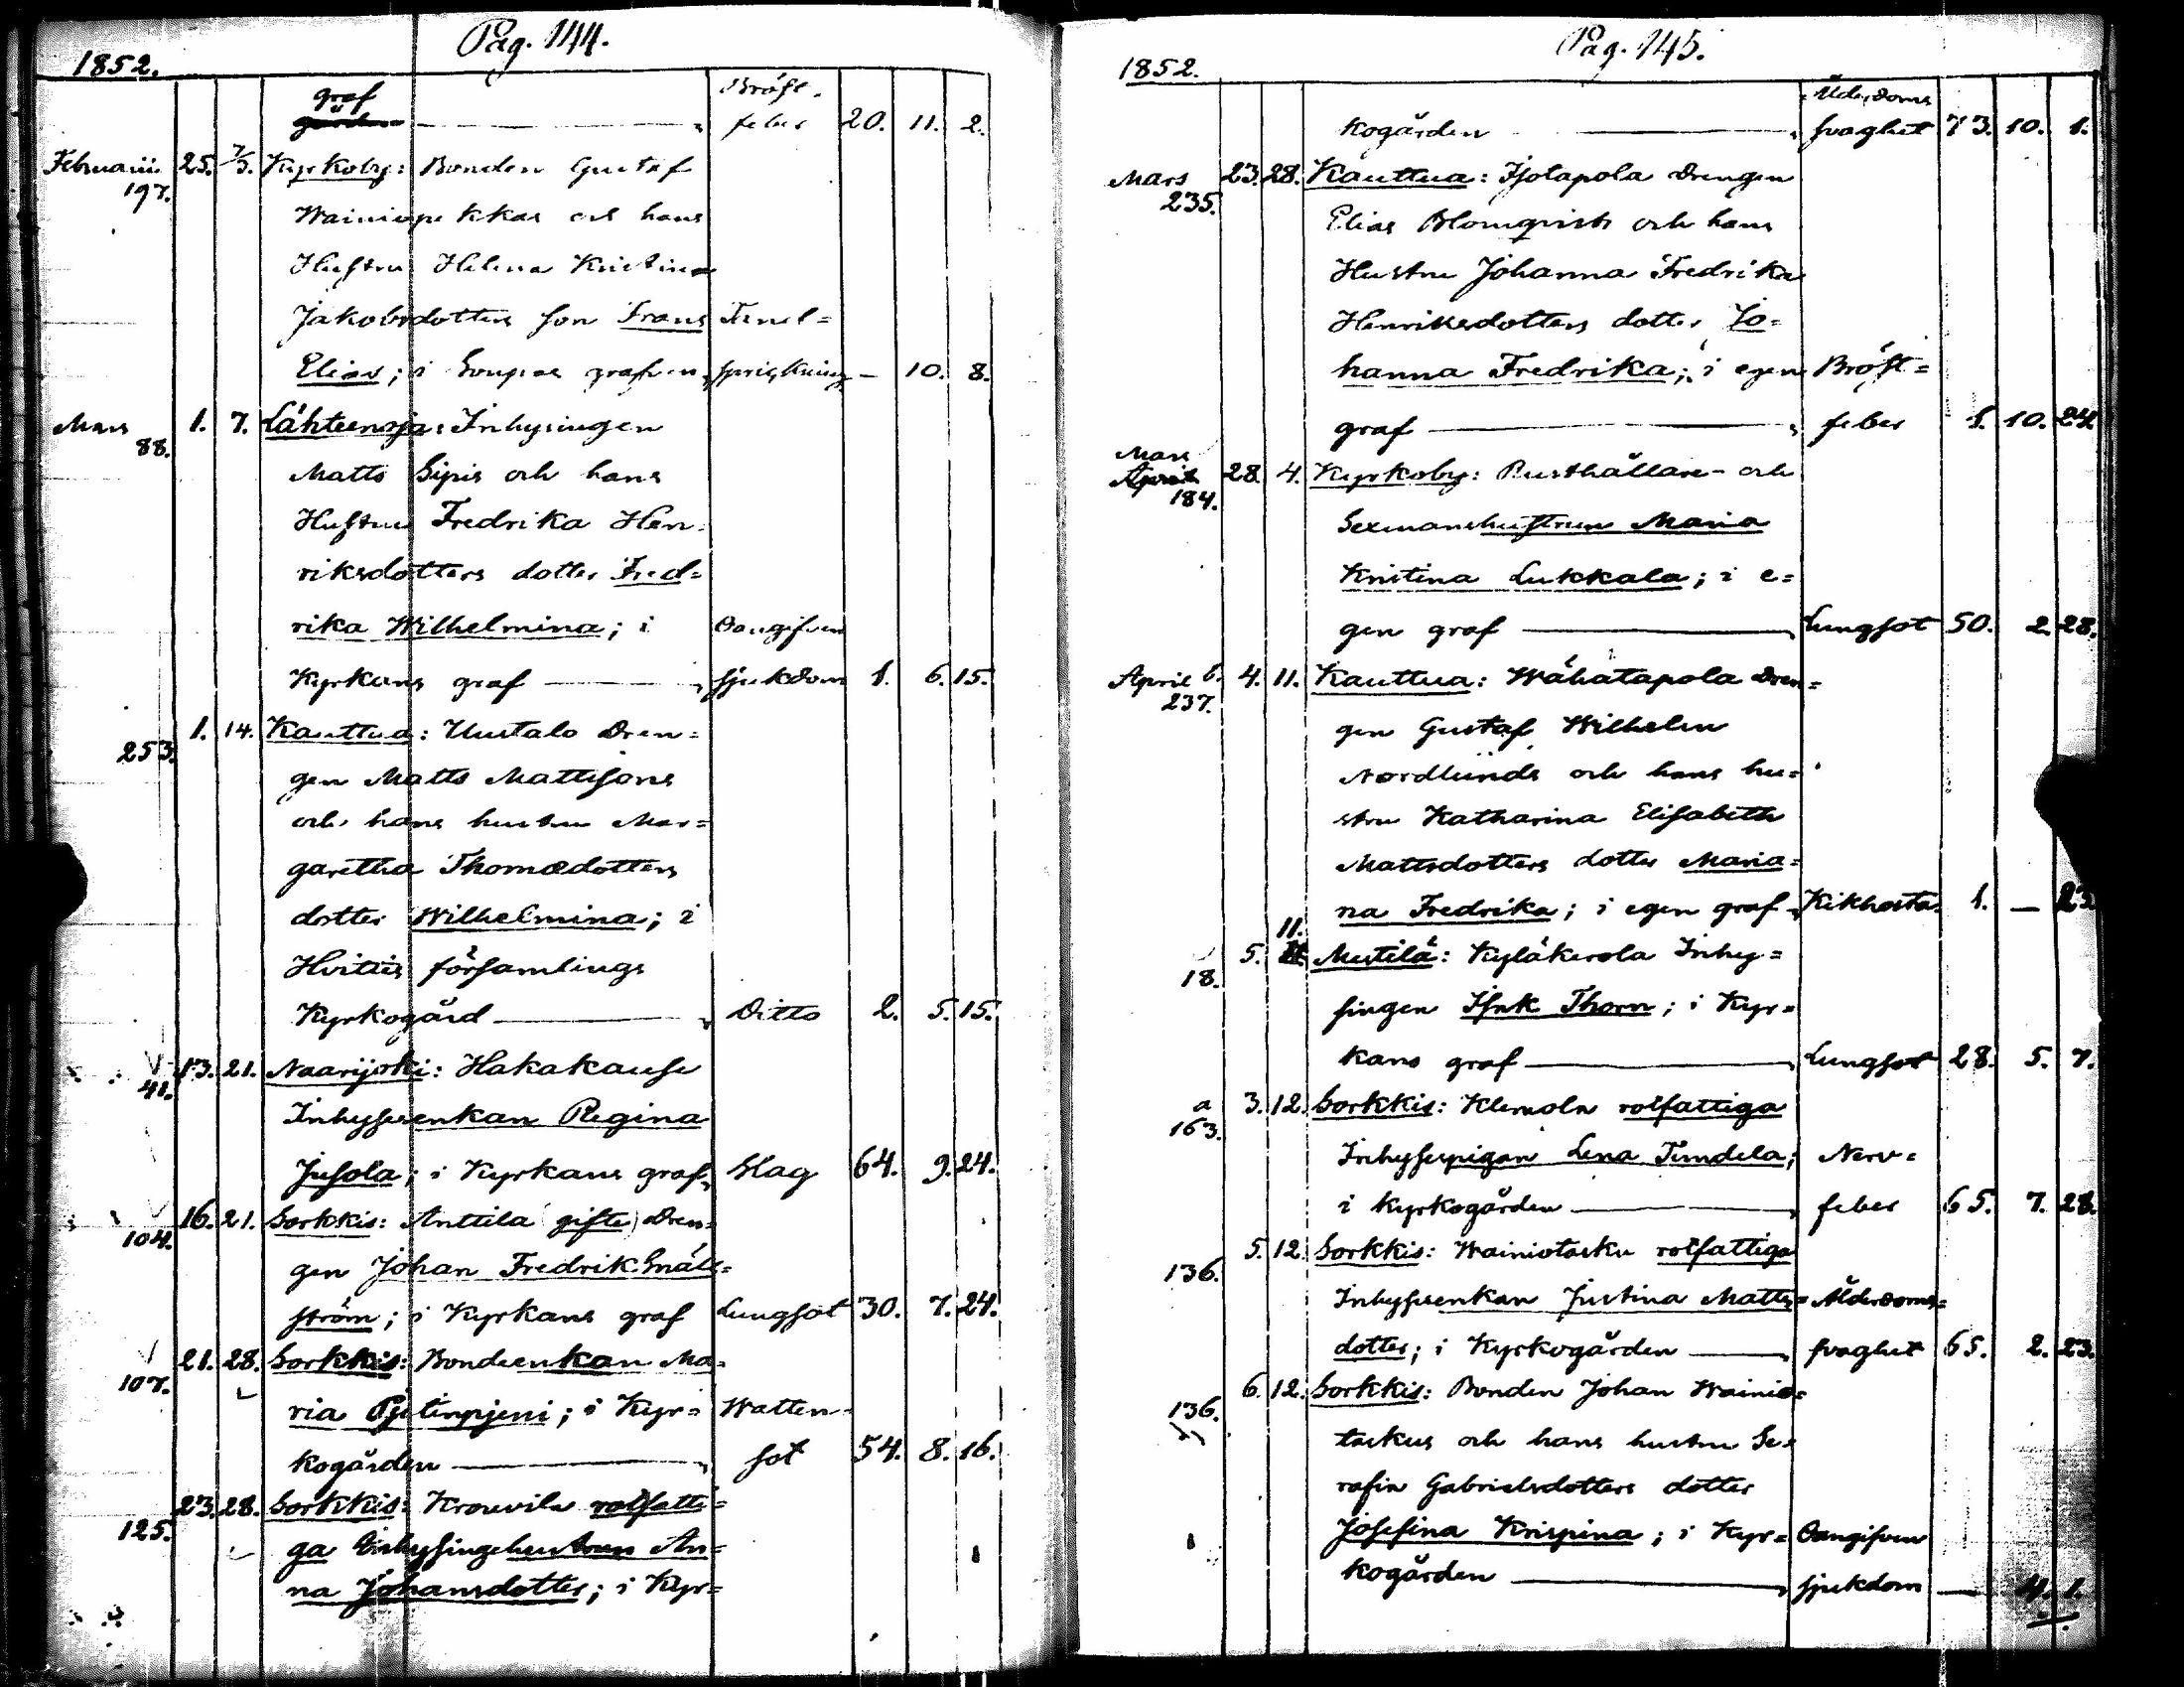 Pag. 144.
1852.
graf Bröst-
feber 20. 11. 2.
Februarii 25. 7/3. Kyrkoby: Bonden Gustaf
197. Wainionpekkas och hans
Hustru Helena Kristina
Jakobsdotters son Frans Tand=
Elias; i Soupas grafven, sprickning — 10. 8.
Mars 1. 7. Lähteenoja: Inhysingen
88. Matts Sipis och hans
Hustru Fredrika Hen=
riksdotters dotter Fred=
rika Wilhelmina; i Oangifven
Kyrkans graf — sjukdom 1. 6. 15.
1. 14. Kauttua: Uustalo Dren=
253. gen Matts Mattssons
och hans hustru Mar=
garetha Thomædotters
dotter Wilhelmina; i
Hvittis församlings
Kyrkogård — Ditto 2. 5. 15.
13. 21. Naarijoki: Hakakause
41. Inhysesenkan Regina
Jusola; i Kyrkans graf, Slag 64. 9. 24.
16. 21. Sorkkis: Anttila (gifte) Dren=
104. gen Johan Fredrik Snäll=
ström; i Kyrkans graf Lungsot 30. 7. 24.
21. 28. Sorkkis: Bondeenkan Ma=
107. ria ; i Kyr= Watten-
kogården — sot 54. 8. 16.
23. 28. Sorkkis: Krouvila rotfatti=
125. ga Inhysingehustrun An=
na Johansdotter; i Kyr=
Pag. 145.
1852.
Ålderdoms
kogården — svaghet 73. 10. 1.
Mars 23. 28. Kauttua: Isotapola Drengen
235. Elias Blomqvists och hans
Hustru Johanna Fredrika
Henriksdotters dotter Jo=
hanna Fredrika; i egen Bröst=
graf — feber 1. 10. 24.
Mars
28. 4. Kyrkoby: Rusthållare- och
184. Sexmanshustrun Maria
Kristina Lukkala; i e=
gen graf — Lungsot 50. 2. 28.
April 6. 4. 11. Kauttua: Wähätapola Dren=
237. gen Gustaf Wilhelm
Nordlunds och hans hu=
stru Katharina Elisabeth
Mattsdotters dotter Maria=
na Fredrika; i egen graf, Kikhosta. 1. — 23.
11.
5. Mestilä: Kyläkerola Inhy=
18. singen Isak Thorn; i Kyr=
kans graf — Lungsot 28. 5. 7.
a 3. 12. Sorkkis: Klemola rotfattiga
163. Inhysespigan Lena Tundela; Nerv=
i Kyrkogården — feber 65. 7. 28.
5. 12. Sorkkis: Wainiotasku rotfattiga
136. Inhysesenkan Justina Matts= Ålderdoms=
dotter; i Kyrkogården — svaghet 65. 2. 23.
6. 12. Sorkkis: Bonden Johan Wainio=
136. taskus och hans hustru Se=
rafia Gabrielsdotters dotter
Josefina Krispina; i Kyr= Oangifven
kogården — sjukdom — 4. 1.